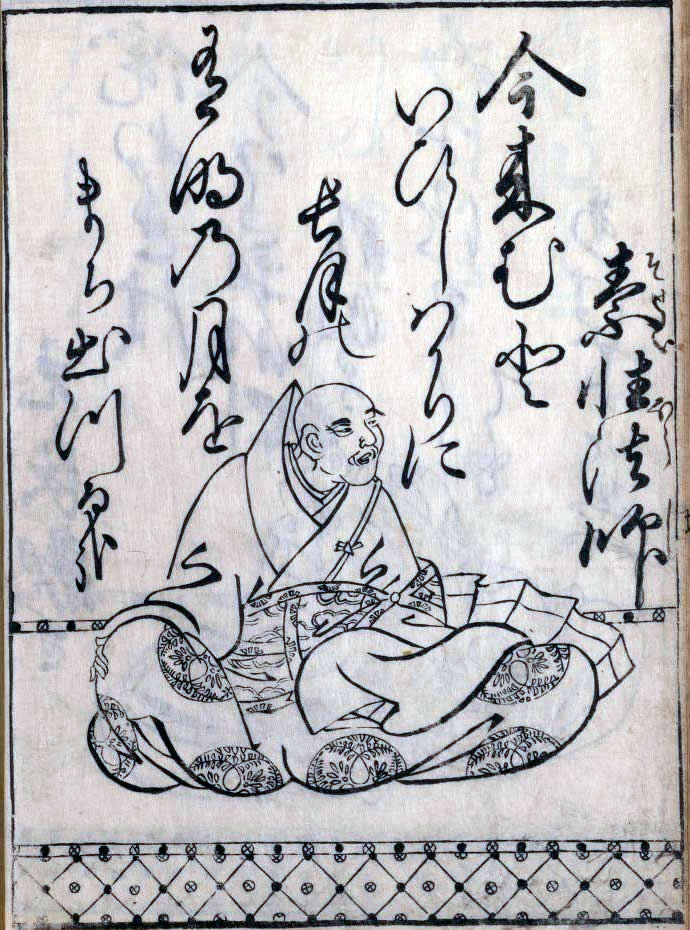 素性法師
そせい
今来むと
いひしハかりに
長月の
有明乃月を
まち出つる哉